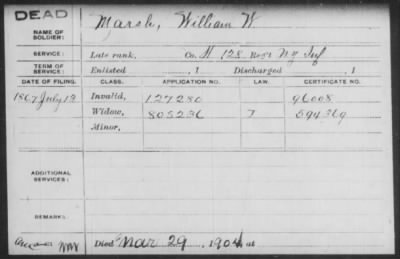 DEAD
NAME OF SOLDIER: Marsh, William W.
SERVICE: Late rank, Co. H 128 Reg't N.Y. Inf
TERM OF SERVICE: Enlisted , 1 Discharged , 1
DATE OF FILING. CLASS. APPLICATION NO. LAW. CERTIFICATE NO.
1867 July 13 Invalid, 127280 96008
Widow, 805236 594369
Minor,
ADDITIONAL SERVICES:
REMARKS:
Died Mar 29, 1904, at